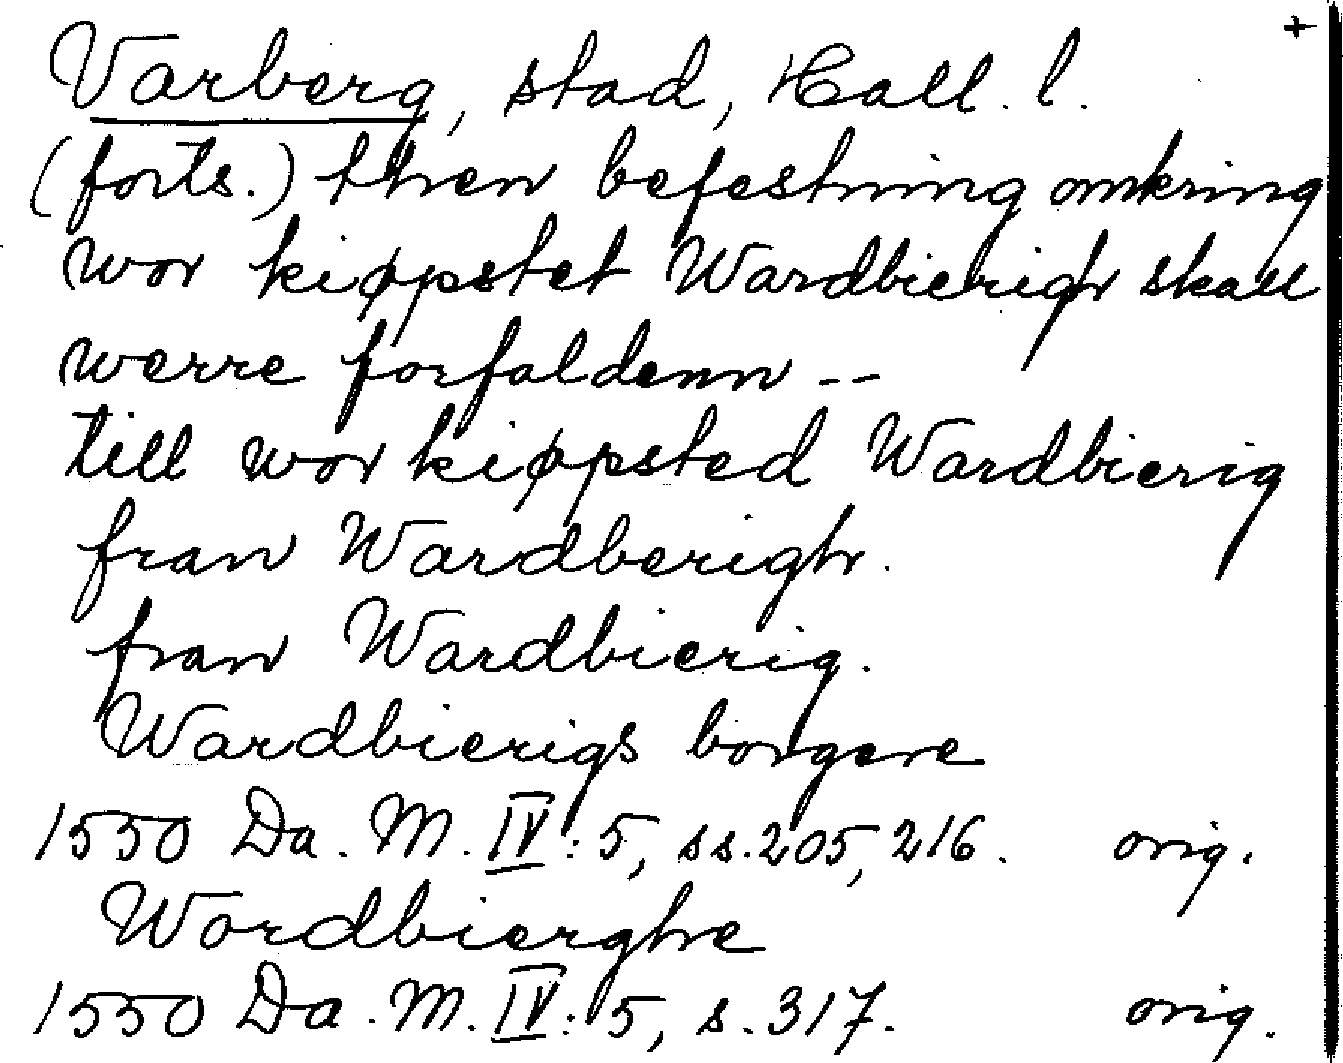 +
Varberg, stad, Hall. l.
(forts.) then befestning omkring
wor kiøpstet Wardbierigh skall
werre forfaldenn --
till wor kiøpsted Wardbierig
fran Wardberigh.
fran Wardbierig.
Wardbierigs borgere
1550 Da. M. IV: 5, ss. 205, 216. orig.
Wordbierghe
1550 Da. M. IV: 5, s. 317. orig.